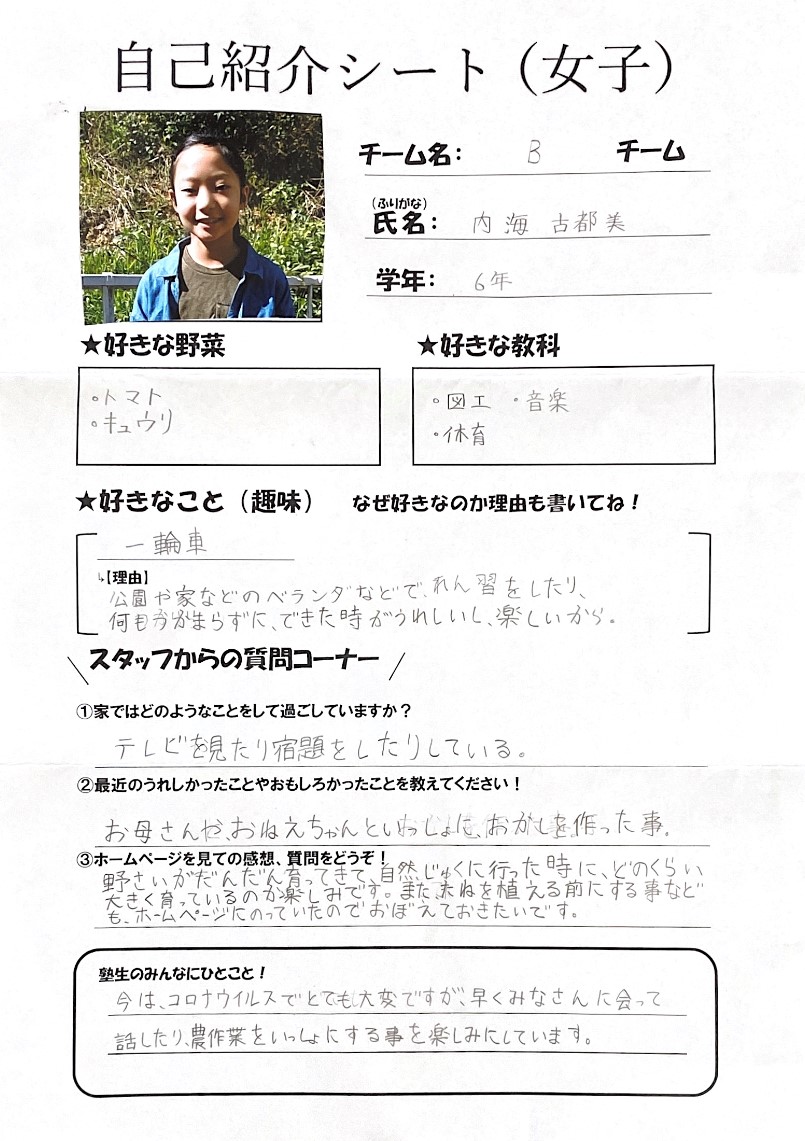 自己紹介シート（女子）
チーム名： B チーム
（ふりがな）
氏名： 内海 古都美
学年： 6年
★好きな野菜
・トマト
・キュウリ
★好きな教科
・図工 ・音楽
・体育
★好きなこと（趣味） なぜ好きなのか理由も書いてね！
一輪車
↳【理由】
公園や家などのベランダなどで、れん習をしたり、
何もつかまらずに、できた時がうれしいし、楽しいから。
スタッフからの質問コーナー
①家ではどのようなことをして過ごしていますか？
テレビを見たり宿題をしたりしている。
②最近のうれしかったことやおもしろかったことを教えてください！
お母さんや、おねえちゃんといっしょに、おかしを作った事。
③ホームページを見ての感想、質問をどうぞ！
野さいがだんだん育ってきて、自然じゅくに行った時に、どのくらい
大きく育っているのか楽しみです。また、たねを植える前にする事など
も、ホームページにのっていたのでおぼえておきたいです。
塾生のみんなにひとこと！
今は、コロナウイルスでとても大変ですが、早くみなさんに会って
話したり、農作業をいっしょにする事を楽しみにしています。